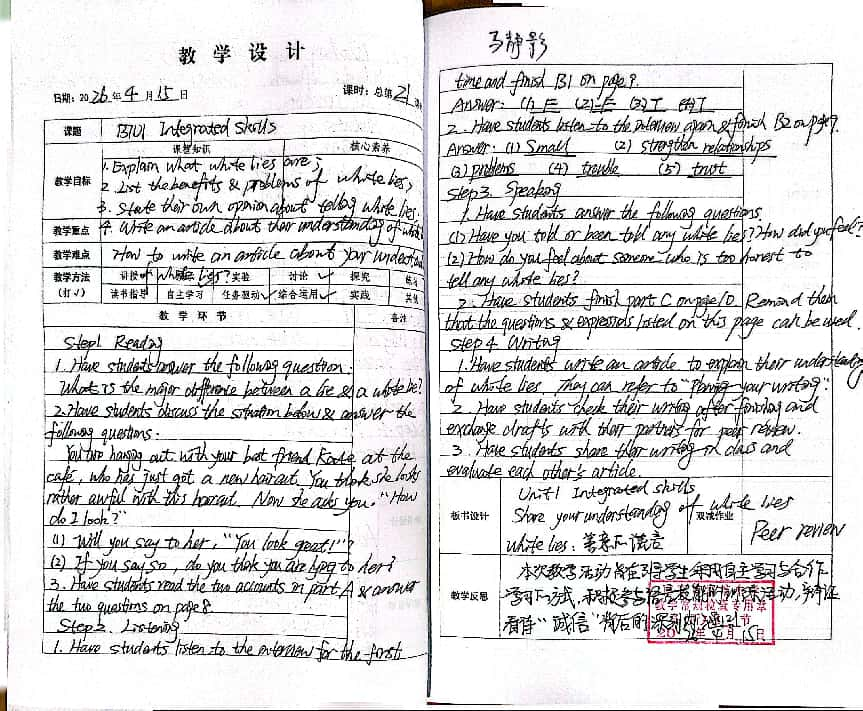 教学设计
日期: 2026年4月15日 课时: 总第21
课题 B1U1 Integrated Skills
课程知识 核心素养
教学目标
1. Explain what white lies are;
2. List the benefits & problems of white lies,
3. State their own opinion about telling white lies.
教学重点 4. Write an article about their understanding of white
教学难点 How to write an article about your understand
教学方法 讲授 实验 讨论 ✓ 探究
white lies?
(打√) 读书指导 自主学习 任务驱动 ✓ 综合运用 ✓ 实践
教学环节 备注
Step1 Reading
1. Have students answer the following question.
What is the major difference between a lie & a white lie?
2. Have students discuss the situation below & answer the
following questions.
You're hanging out with your best friend Kate at the
café, who has just got a new haircut. You think she looks
rather awful with this haircut. Now she asks you. "How
do I look?"
(1) Will you say to her, "You look great!"?
(2) If you say so, do you think you are lying to her?
3. Have students read the two accounts in part A & answer
the two questions on page 8
Step 2. Listening
1. Have students listen to the interview for the first
马静影
time and finish B1 on page 9.
Answer: (1) F (2) F (3) T (4) T
2. Have students listen to the interview again & finish B2 on page 9.
Answer: (1) Small (2) strengthen relationships
(3) problems (4) trouble (5) trust
Step 3. Speaking
1. Have students answer the following questions.
(1) Have you told or been told any white lies? How did you feel?
(2) How do you feel about someone who is too honest to
tell any white lies?
2. Have students finish part C on page 10 Remind them
that the questions & expressions listed on this page can be used.
Step 4 Writing
1. Have students write an article to explain their understanding
of white lies. They can refer to "Planning your writing".
2. Have students check their writing after finishing and
exchange drafts with their partner for peer review.
3. Have students share their writing in class and
evaluate each other's article.
板书设计
Unit 1 Integrated skills
Share your understanding of white lies
white lies: 善意的谎言
双减作业
Peer review
教学反思
本次教学活动旨在引导学生采用自主学习与合作
学习的方式, 积极参与语言技能的训练活动, 辩证
看待"诚信"背后的深刻内涵
教学常规检查专用章